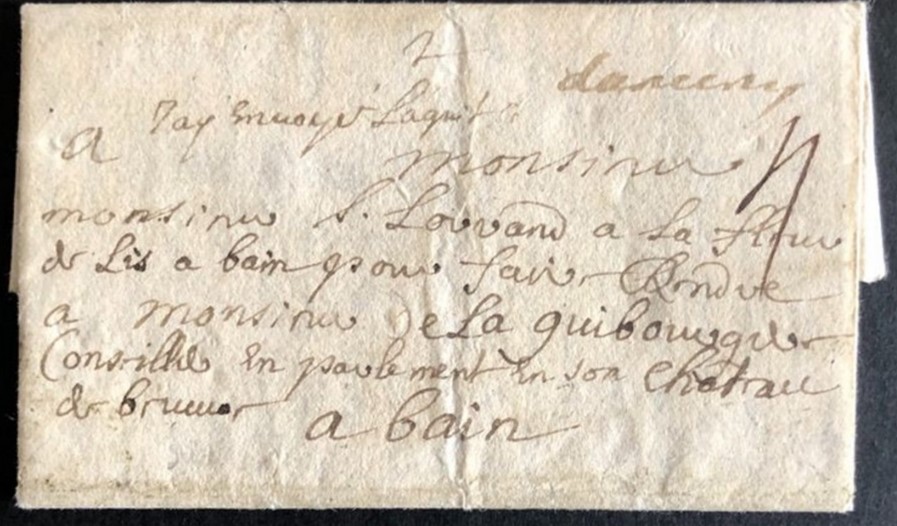 4
danceny
Jay Envoyé Laquit
A monsieur
monsieur L. Louvand a La fleur
de Lis a bain pour faire Rendre
a monsieur De La guibourgere
Conseille En parlement En son Chateau
de
a bain